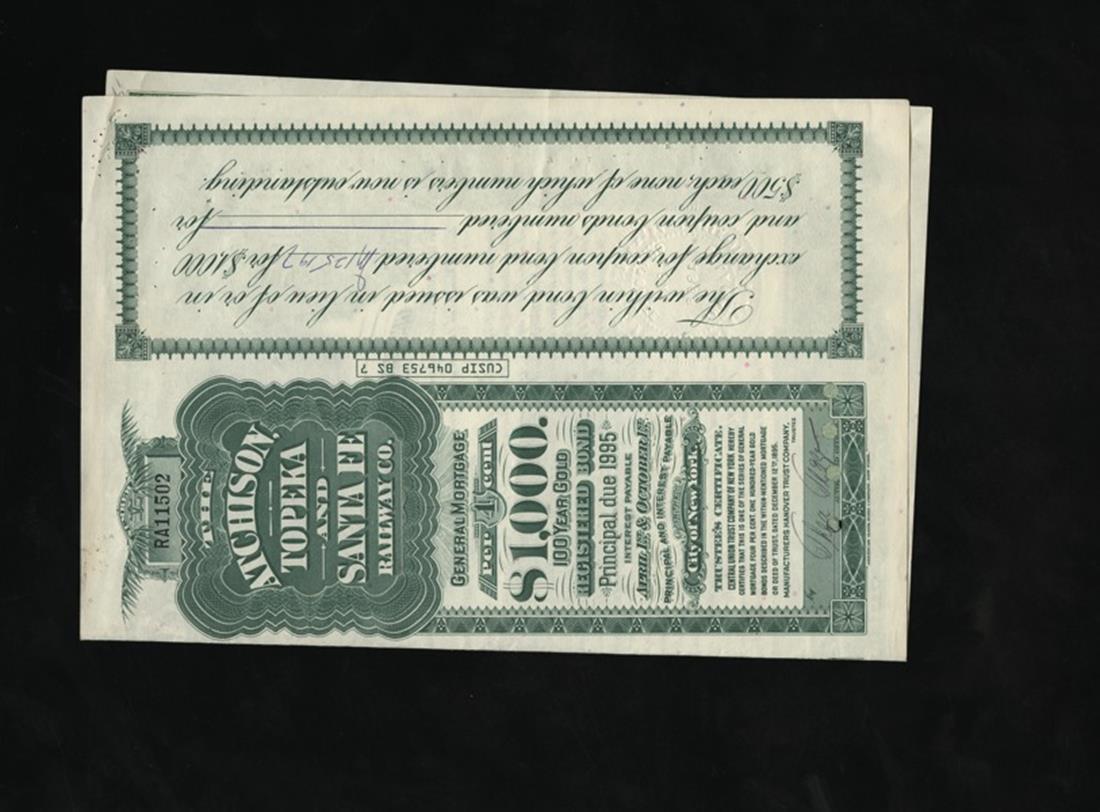 RA11502
THE
ATCHISON,
TOPEKA
AND
SANTA FE
RAILWAY CO.
GENERAL MORTGAGE
4 PER cent
$1,000.
100 YEAR GOLD
REGISTERED BOND
Principal due 1995
INTEREST PAYABLE
APRIL 1st & OCTOBER 1st
PRINCIPAL AND INTEREST PAYABLE
City of New York.
TRUSTEE'S CERTIFICATE.
CENTRAL UNION TRUST COMPANY OF NEW YORK HEREBY
CERTIFIES THAT THIS IS ONE OF THE SERIES OF GENERAL
MORTGAGE FOUR PER CENT ONE HUNDRED-YEAR GOLD
BONDS DESCRIBED IN THE WITHIN-MENTIONED MORTGAGE
OR DEED OF TRUST, DATED DECEMBER 12TH, 1895.
MANUFACTURERS HANOVER TRUST COMPANY,
TRUSTEE
by
CUSIP 046753 BS 7
The within bond was issued in lieu of or in
exchange for coupon bond numbered for $1,000
and coupon bonds numbered for
$500 each, none of which numbers is now outstanding.